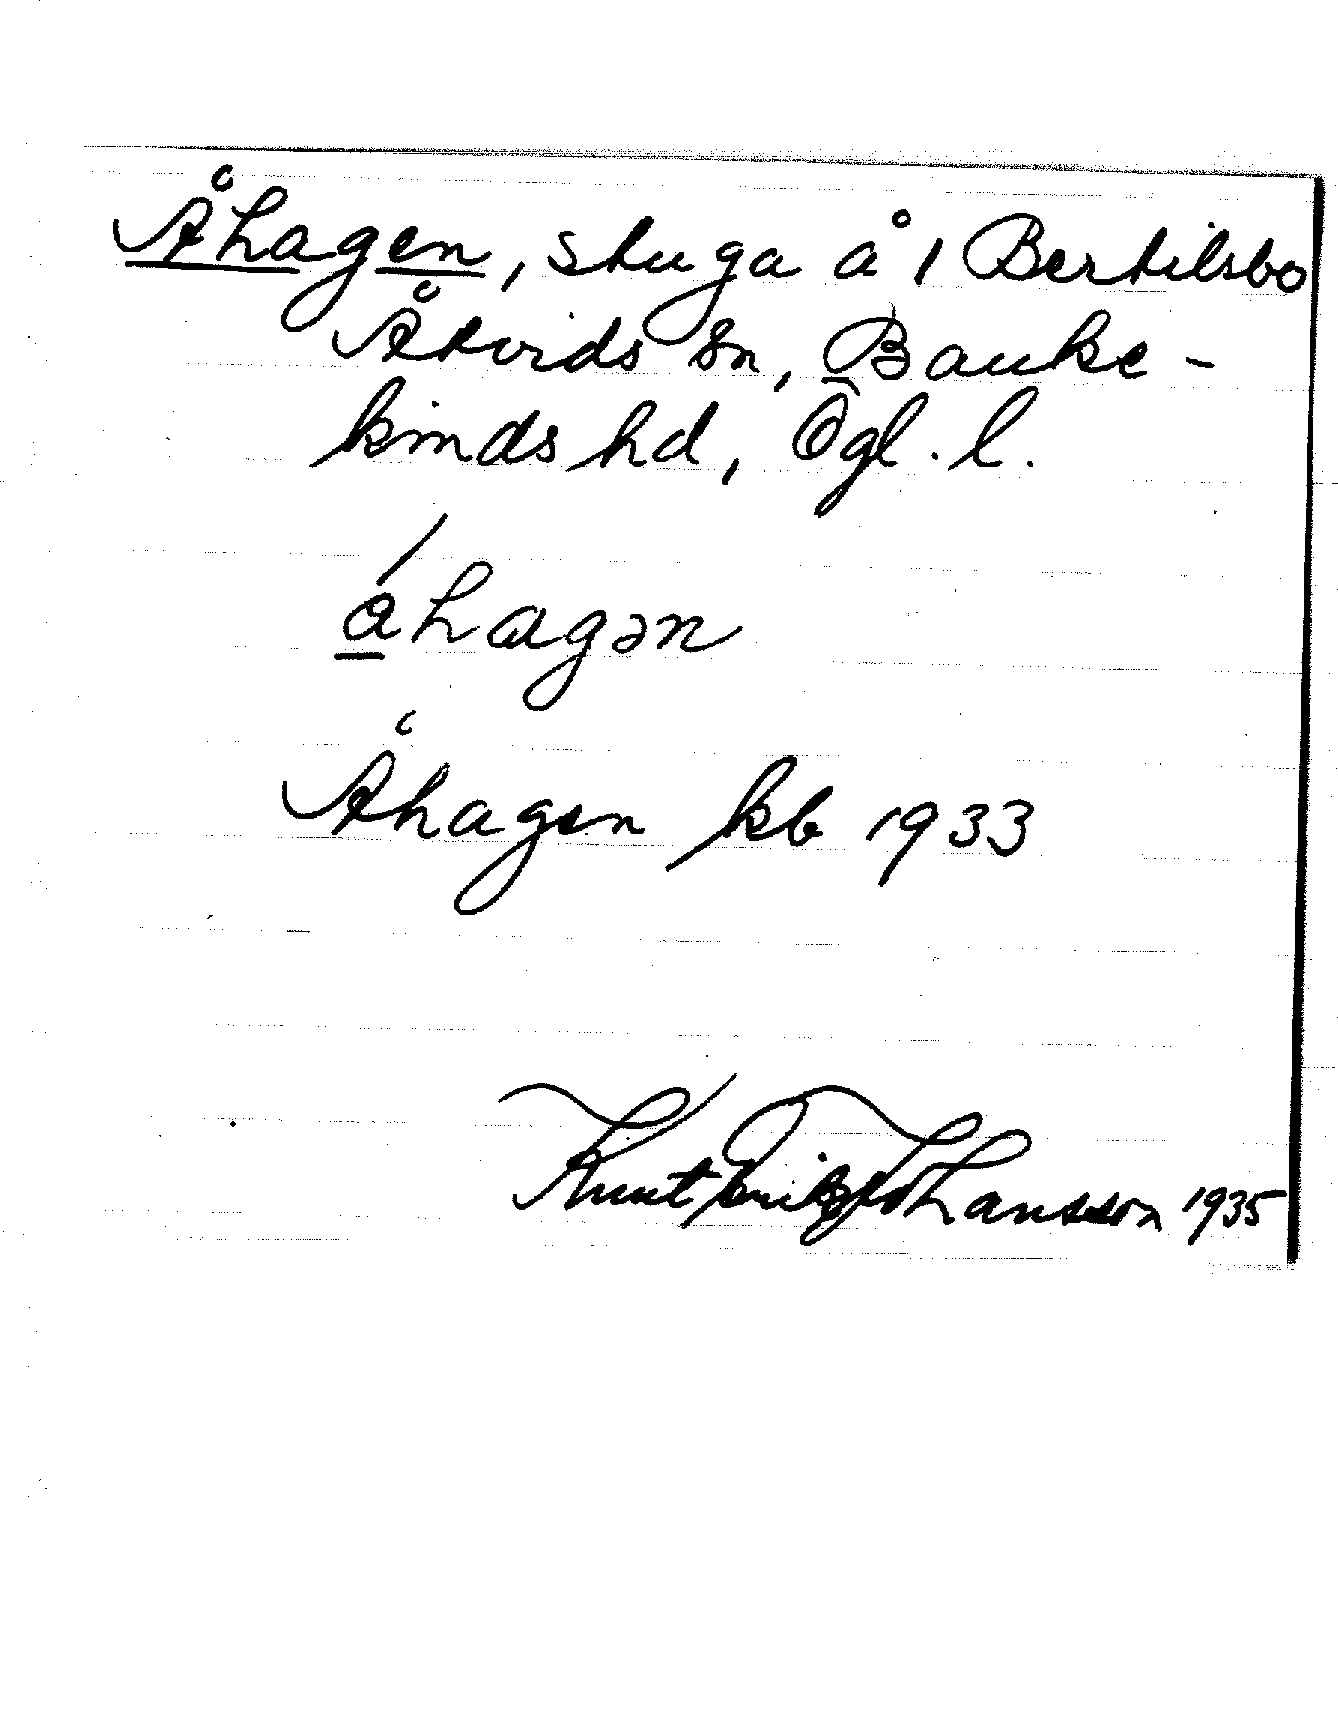 Åhagen, stuga å 1 Bertilsbo
Åtvids sn, Banke-
kinds hd, Ögl. l.
åhagən
Åhagen kb 1933
Knut Erik Johansson 1935